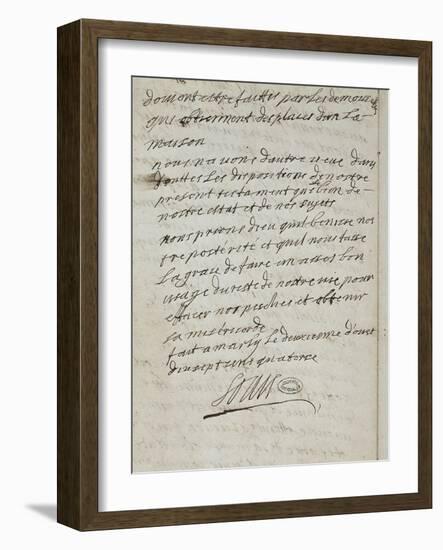 doivent estre faittes par les demois
qui obtiennent des places dans la
maison
nous navons dautre veue dans
touttes les dispositions de nostre
present testament que le bien de
nostre estat et de nos sujets
nous prions dieu quil benisse nos
tre postérité et quil nous fasse
la grace de faire un asses bon
usage du reste de nostre vie pour
effacer nos peches et obtenir
sa misericorde
fait a marly le deuxieme d'oust
dixsept cens quatorse
Louis